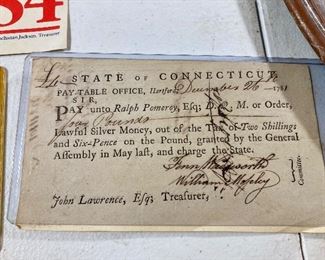 84
Jackson, Treasurer
STATE OF CONNECTICUT.
PAY-TABLE OFFICE, Hartford December 26 1781
SIR,
PAY unto Ralph Pomeroy, Esq; D. Q. M. or Order,
Four Pounds
Lawful Silver Money, out of the Tax of Two Shillings
and Six-Pence on the Pound, granted by the General
Assembly in May last, and charge the State.
Fenn Wadsworth
William Moseley
Committee.
John Lawrence, Esq; Treasurer,